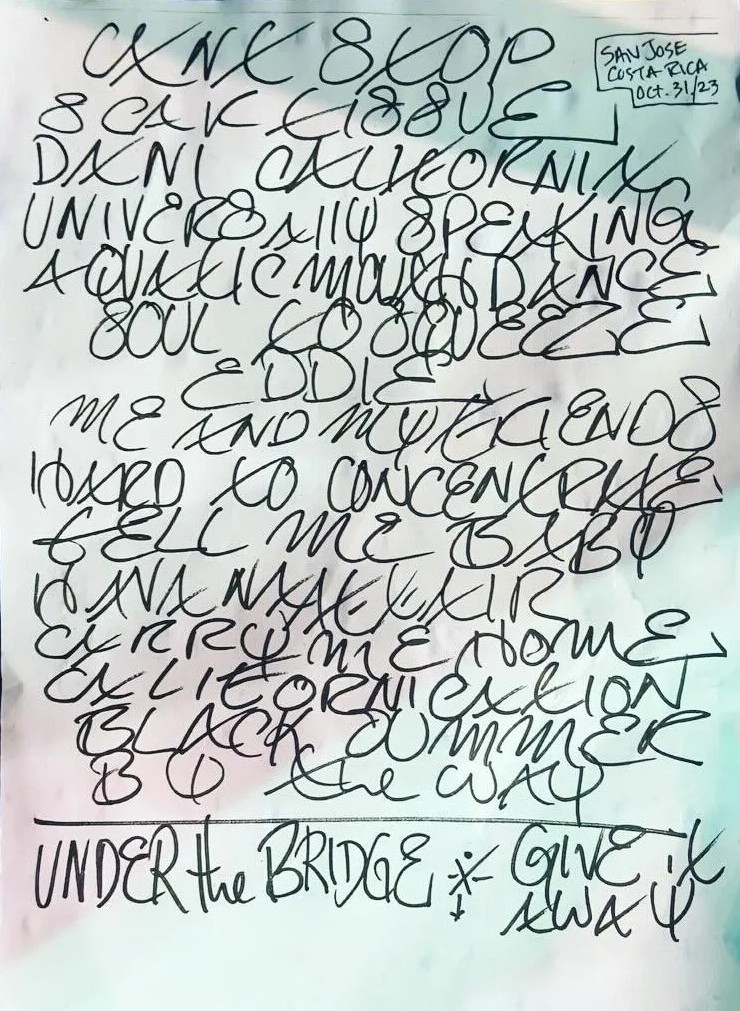 CAN'T STOP
SAN JOSE
COSTA RICA
OCT. 31/23
SCAR TISSUE
DANI CALIFORNIA
UNIVERSALLY SPEAKING
AQUATIC MOUTH DANCE
SOUL TO SQUEEZE
EDDIE
ME AND MY FRIENDS
HARD TO CONCENTRATE
TELL ME BABY
HAVANA AFFAIR
CARRY ME HOME
CALIFORNICATION
BLACK SUMMER
BY the WAY
UNDER the BRIDGE GIVE IT
AWAY